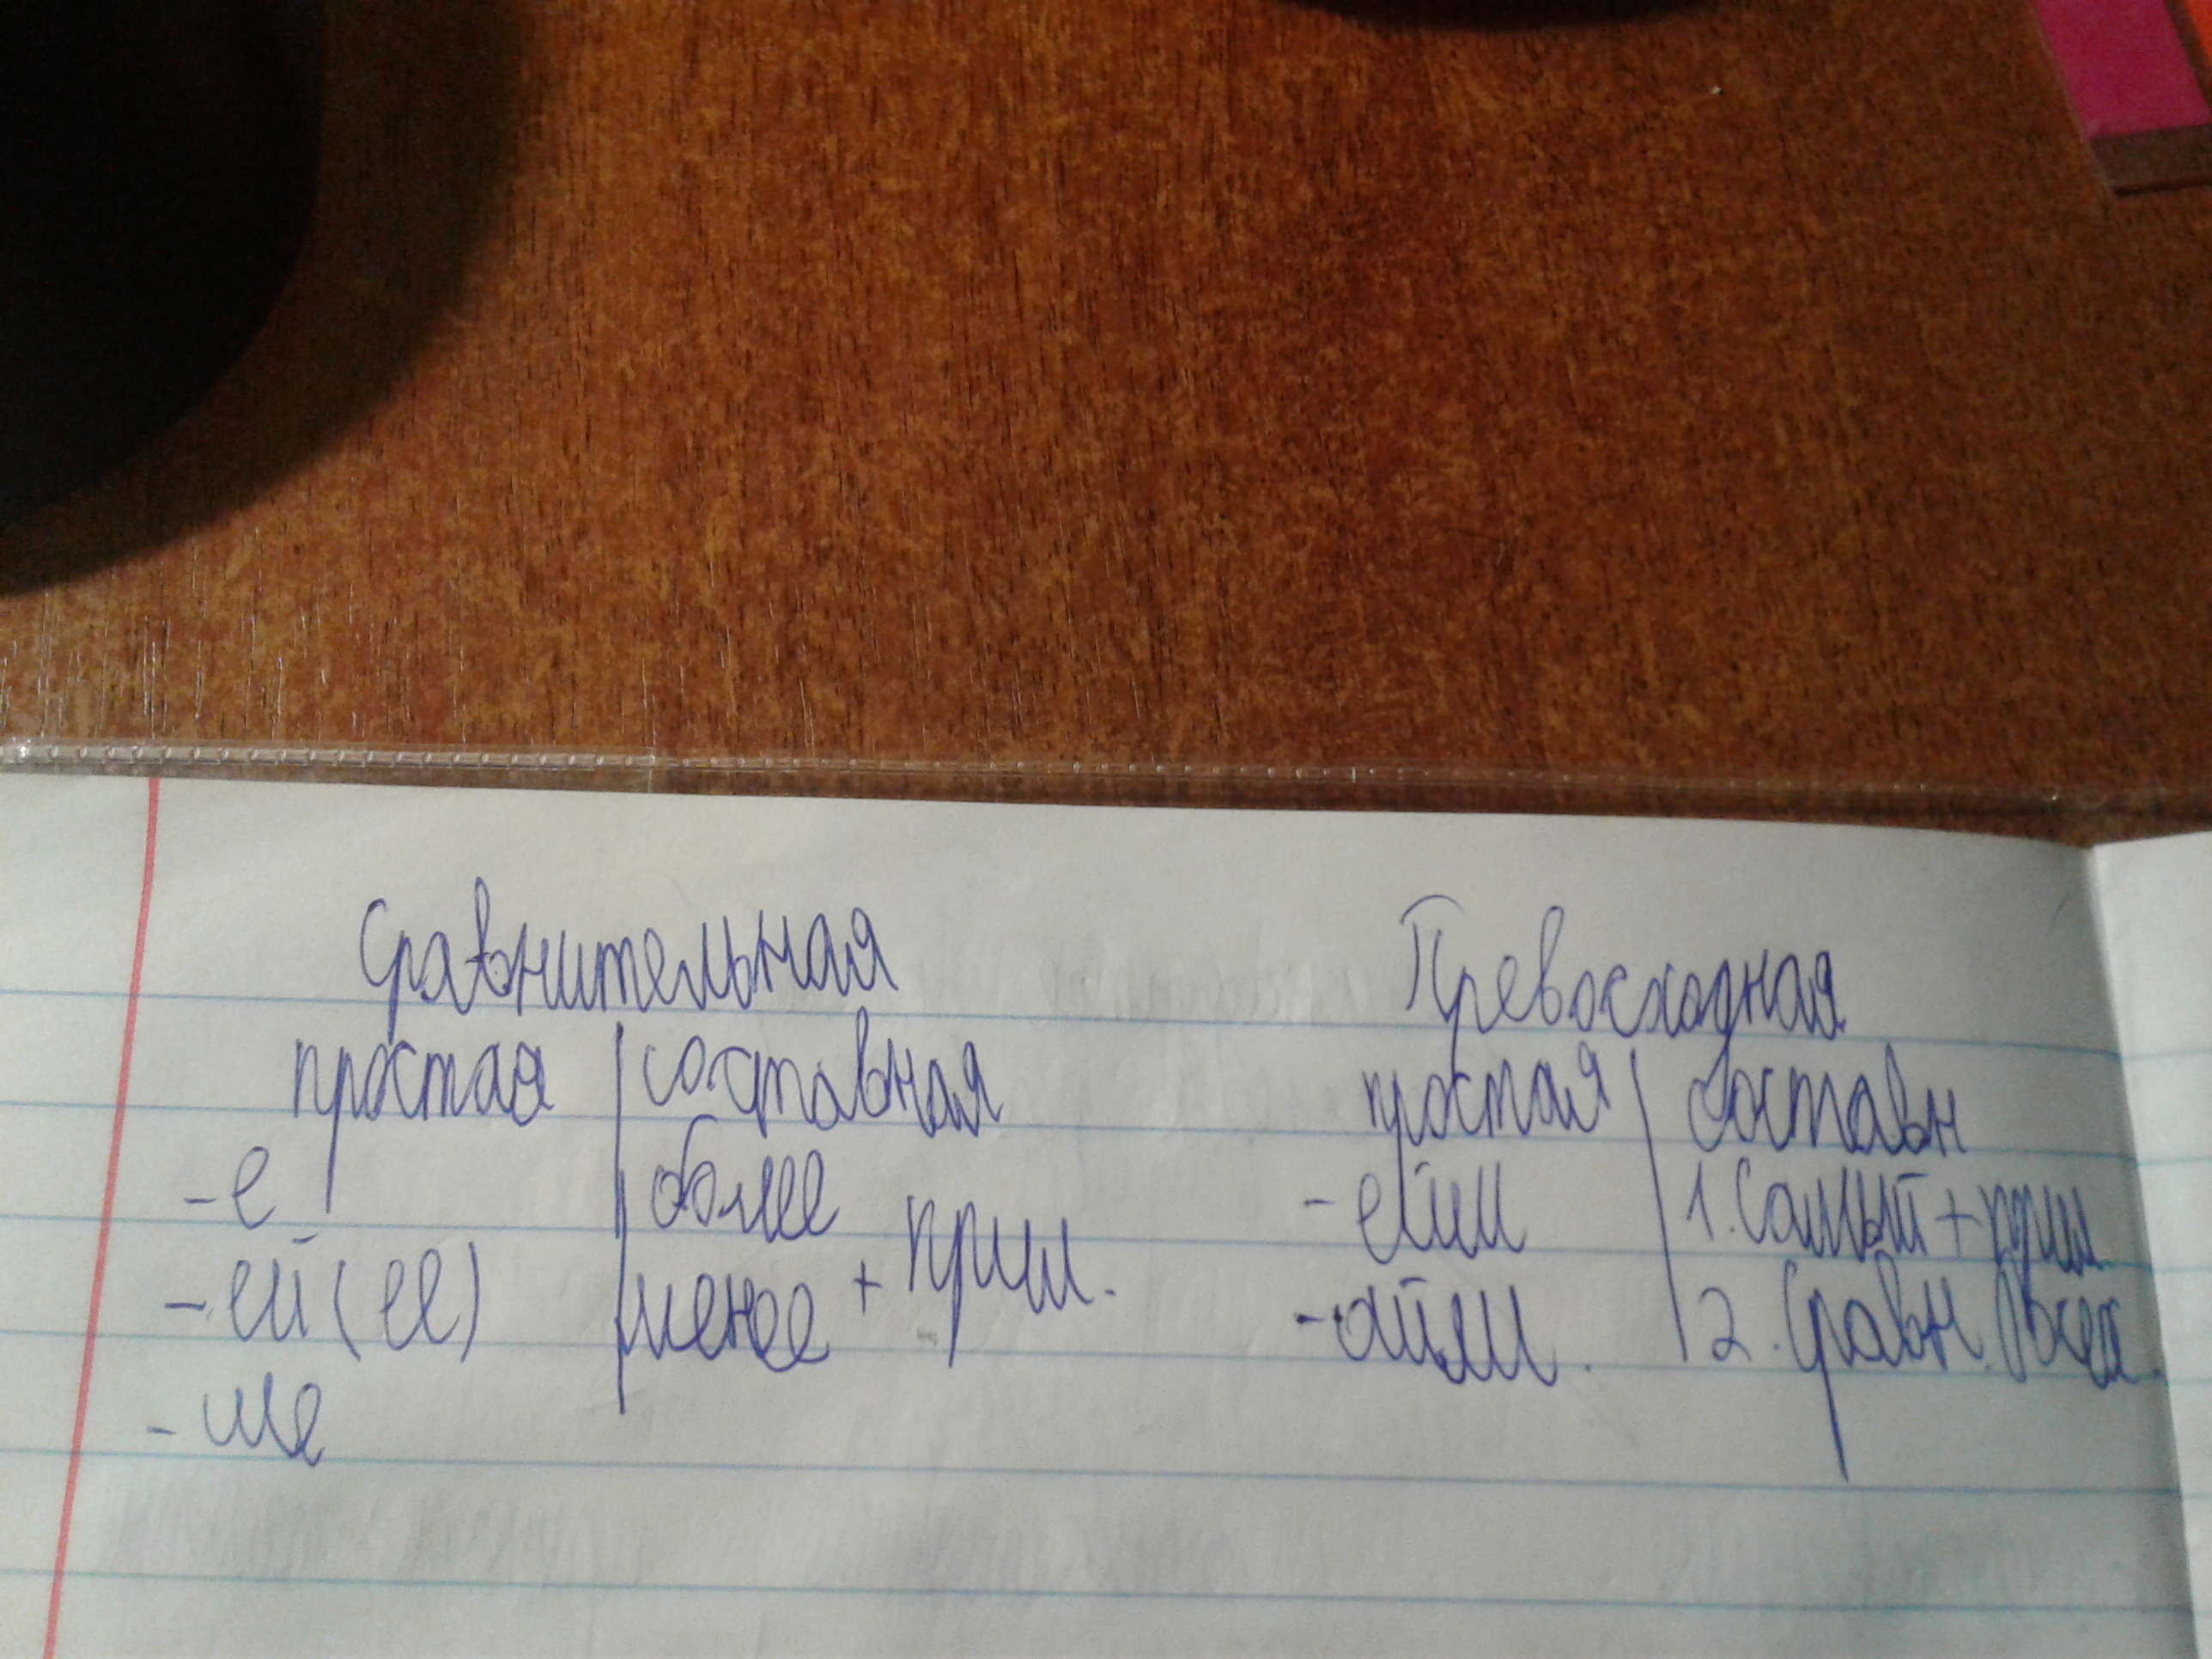 Сравнительная
простая | составная
-е
более
-ей (ее)
менее + прил.
-ше
Превосходная
простая | составн
-ейш
1. Самый + прил.
-айш.
2. Сравн. + всех.